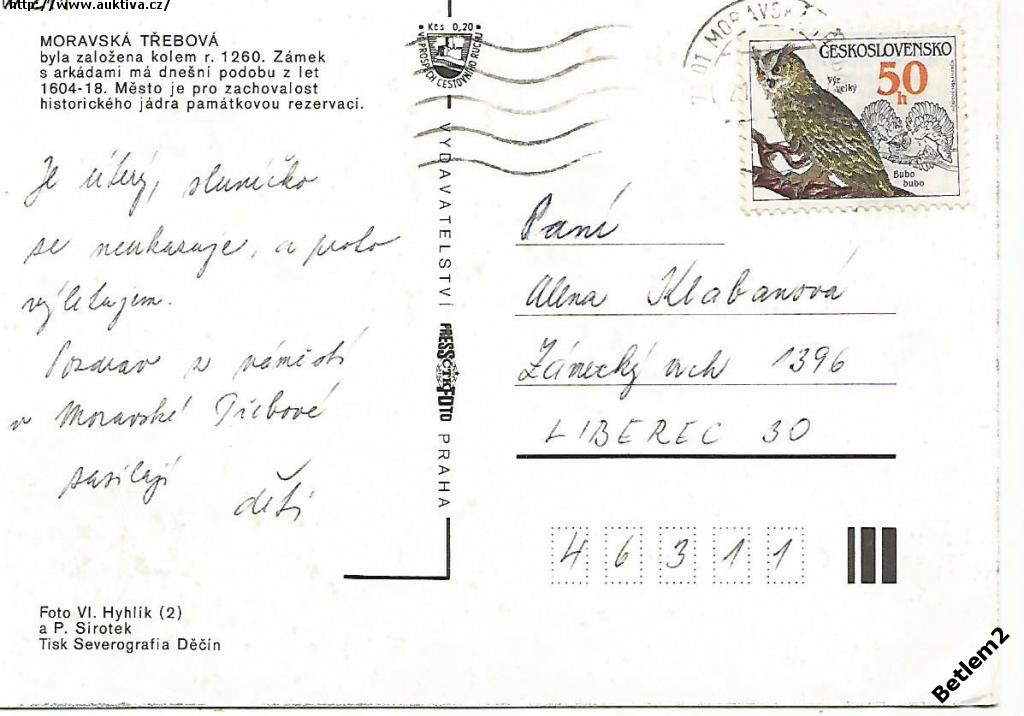 http://www.auktiva.cz/
MORAVSKÁ TŘEBOVÁ
byla založena kolem r. 1260. Zámek
s arkádami má dnešní podobu z let
1604-18. Město je pro zachovalost
historického jádra památkovou rezervací.
Kčs 0,20
VE PROSPĚCH CESTOVNÍHO RUCHU
01 MORAVSKÁ
ČESKOSLOVENSKO
50
h
Výr
velký
Bubo
bubo
Je úterý, sluníčko
se neukazuje, a proto
výletujem.
Pozdrav z náměstí
v Moravské Třebové
zasílají
děti
VYDAVATELSTVÍ PRESSFOTO PRAHA
ČTK
Paní
Alena Klabanová
Zámecký vrch 1396
LIBEREC 30
46311
Foto Vl. Hyhlík (2)
a P. Sirotek
Tisk Severografia Děčín
Betlem2